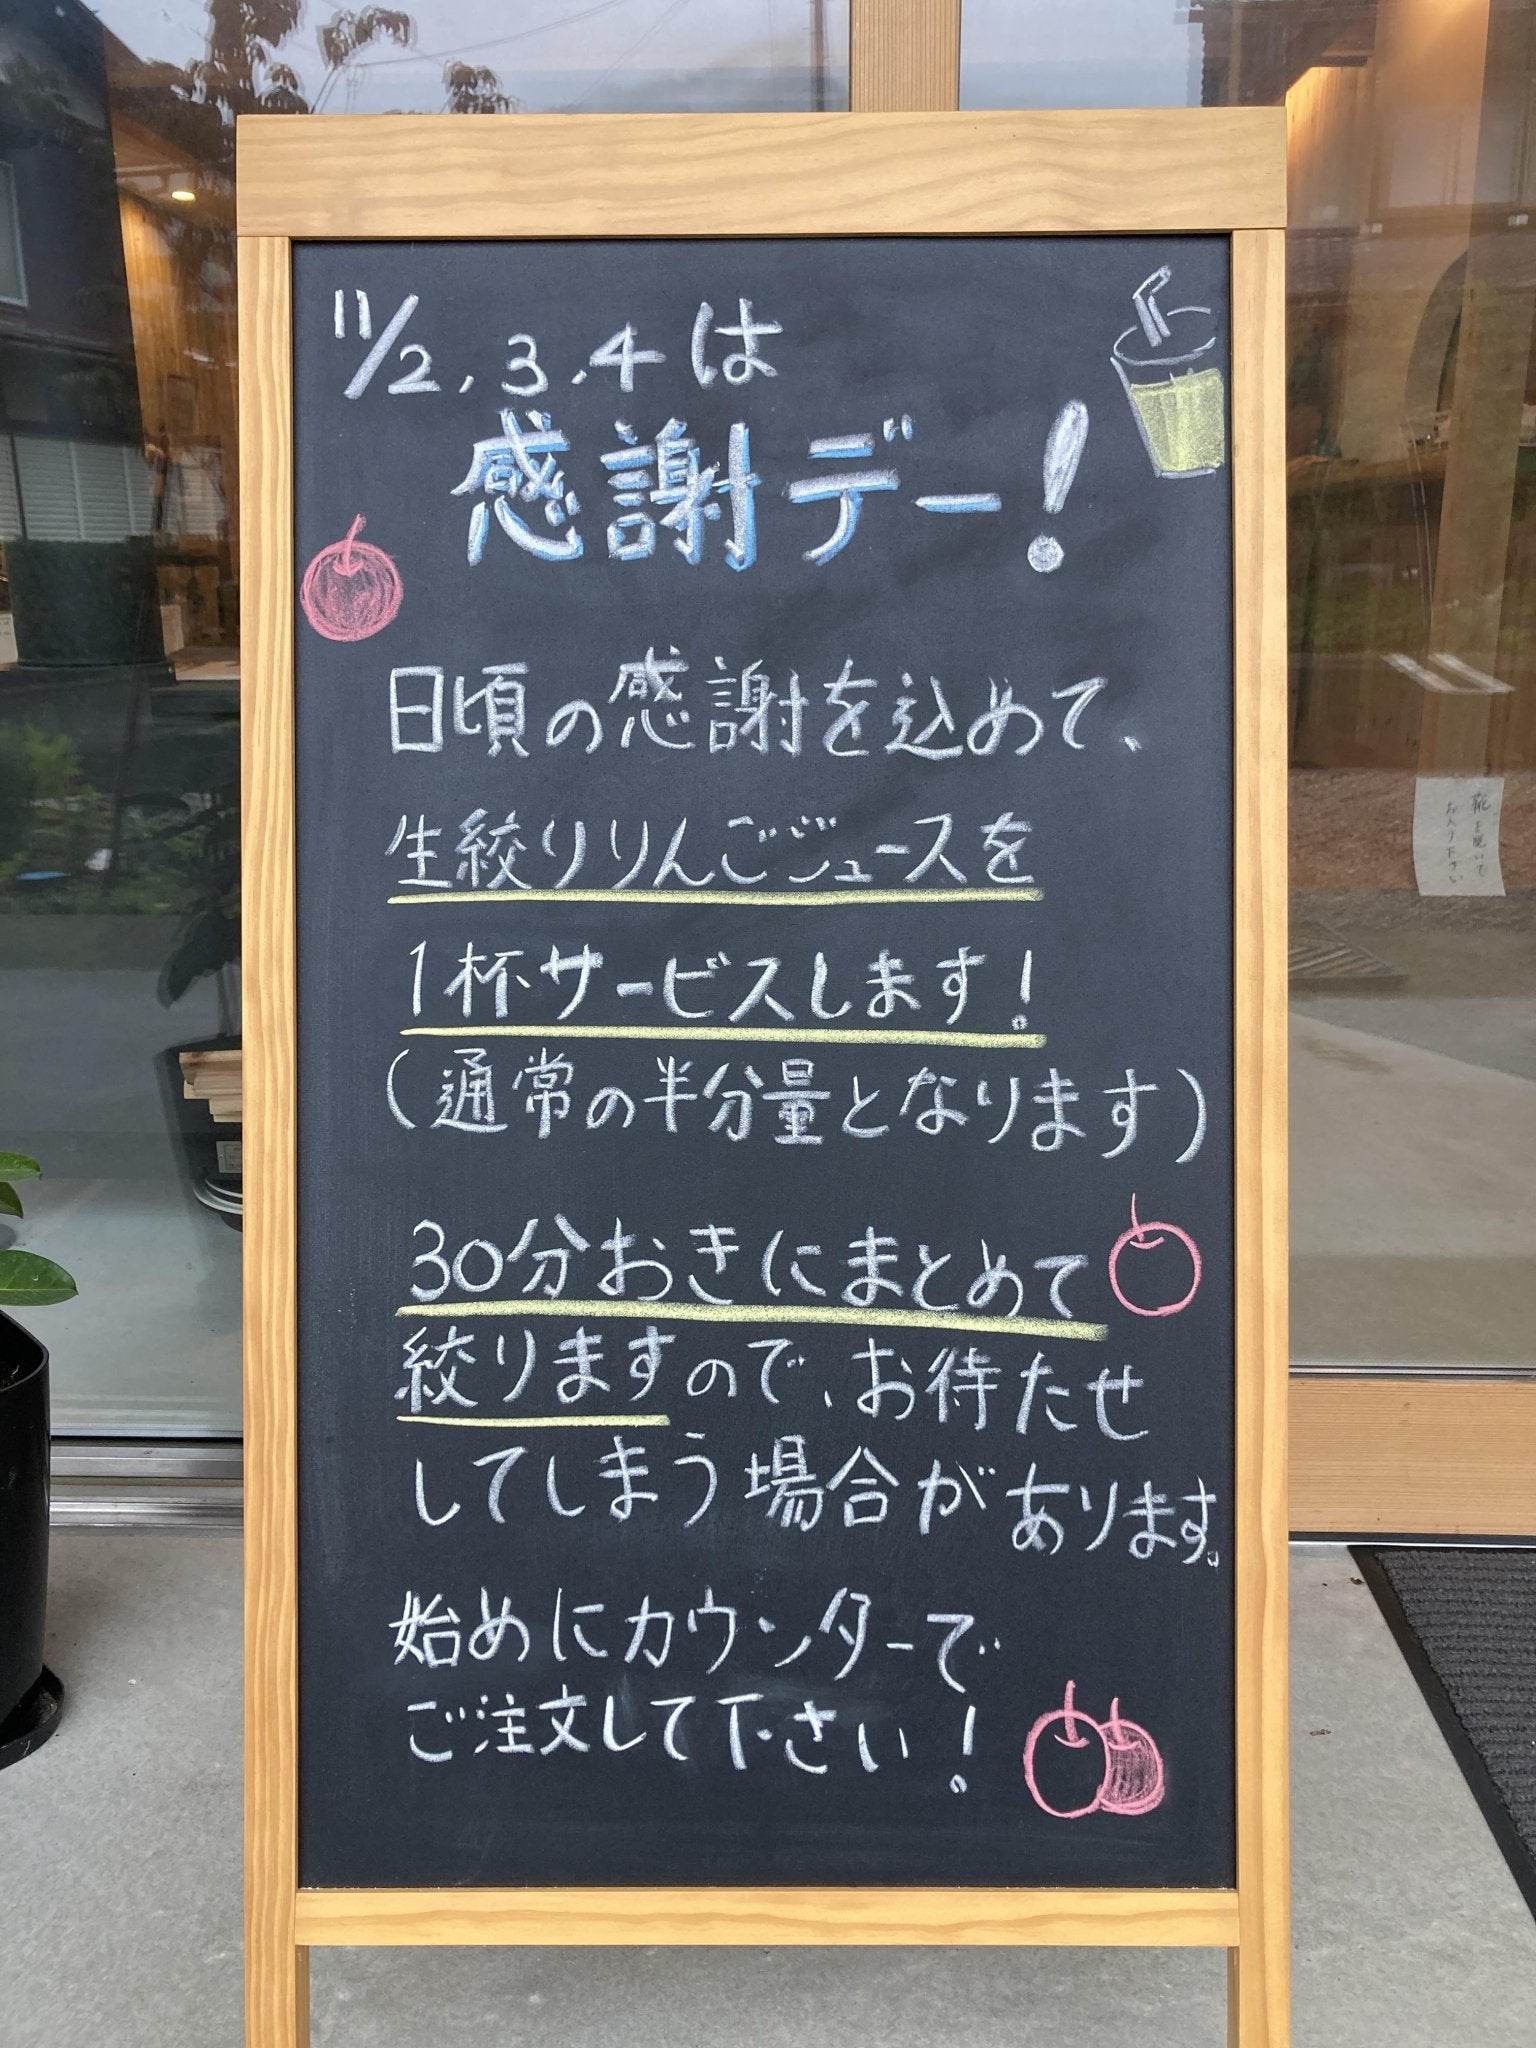 11/2,3,4は
感謝デー!
日頃の感謝を込めて、
生絞りりんごジュースを
1杯サービスします!
(通常の半分量となります)
30分おきにまとめて
絞りますので、お待たせ
してしまう場合があります。
始めにカウンターで
ご注文して下さい!
靴を脱いで
お入り下さい